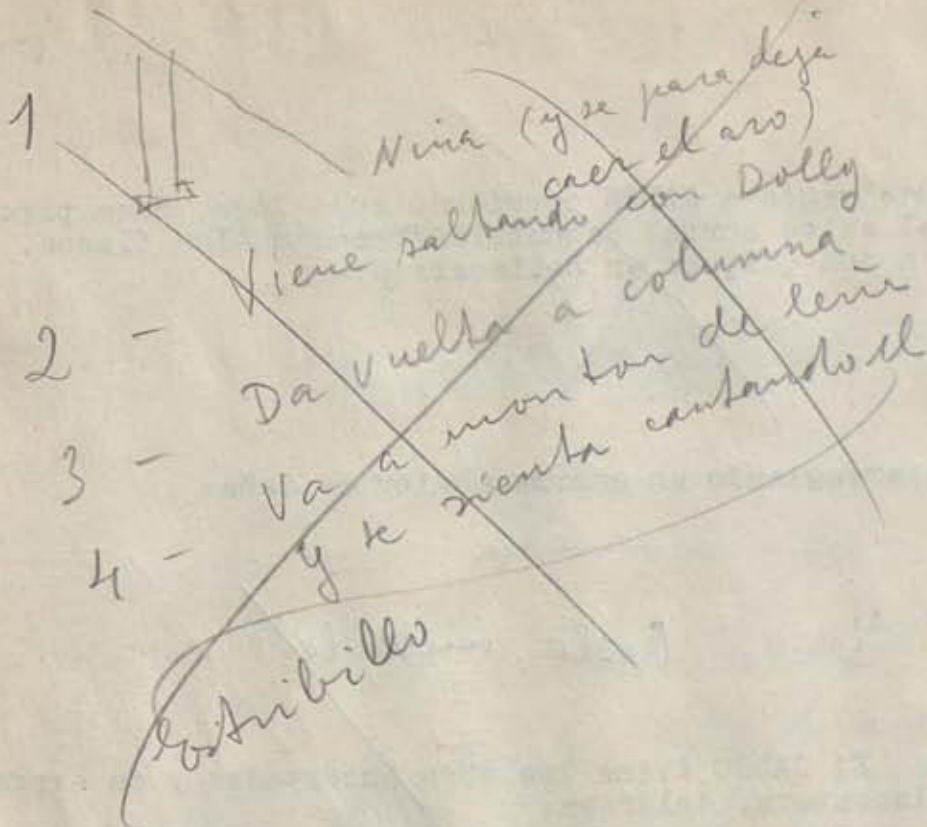 1
Nina (y se para deja
caer el aro)
2 - Viene saltando con Dolly
3 - Da vuelta a columna
4 - Va a monton de leña
y se sienta cantando el
Estribillo